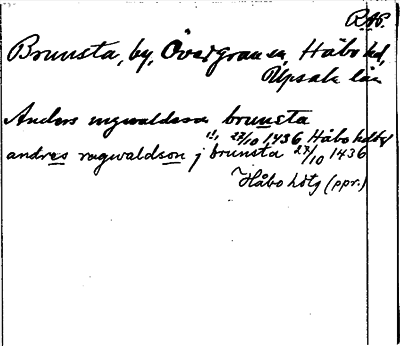 RAP.
Brunsta, by, Övergrans sn, Håbo hd,
Upsala län
Anders ragwaldsson brunsta
27/10 1436 Håbo
andres ragwaldson j brunsta 27/10 1436
Håbo hdtg (ppr.)